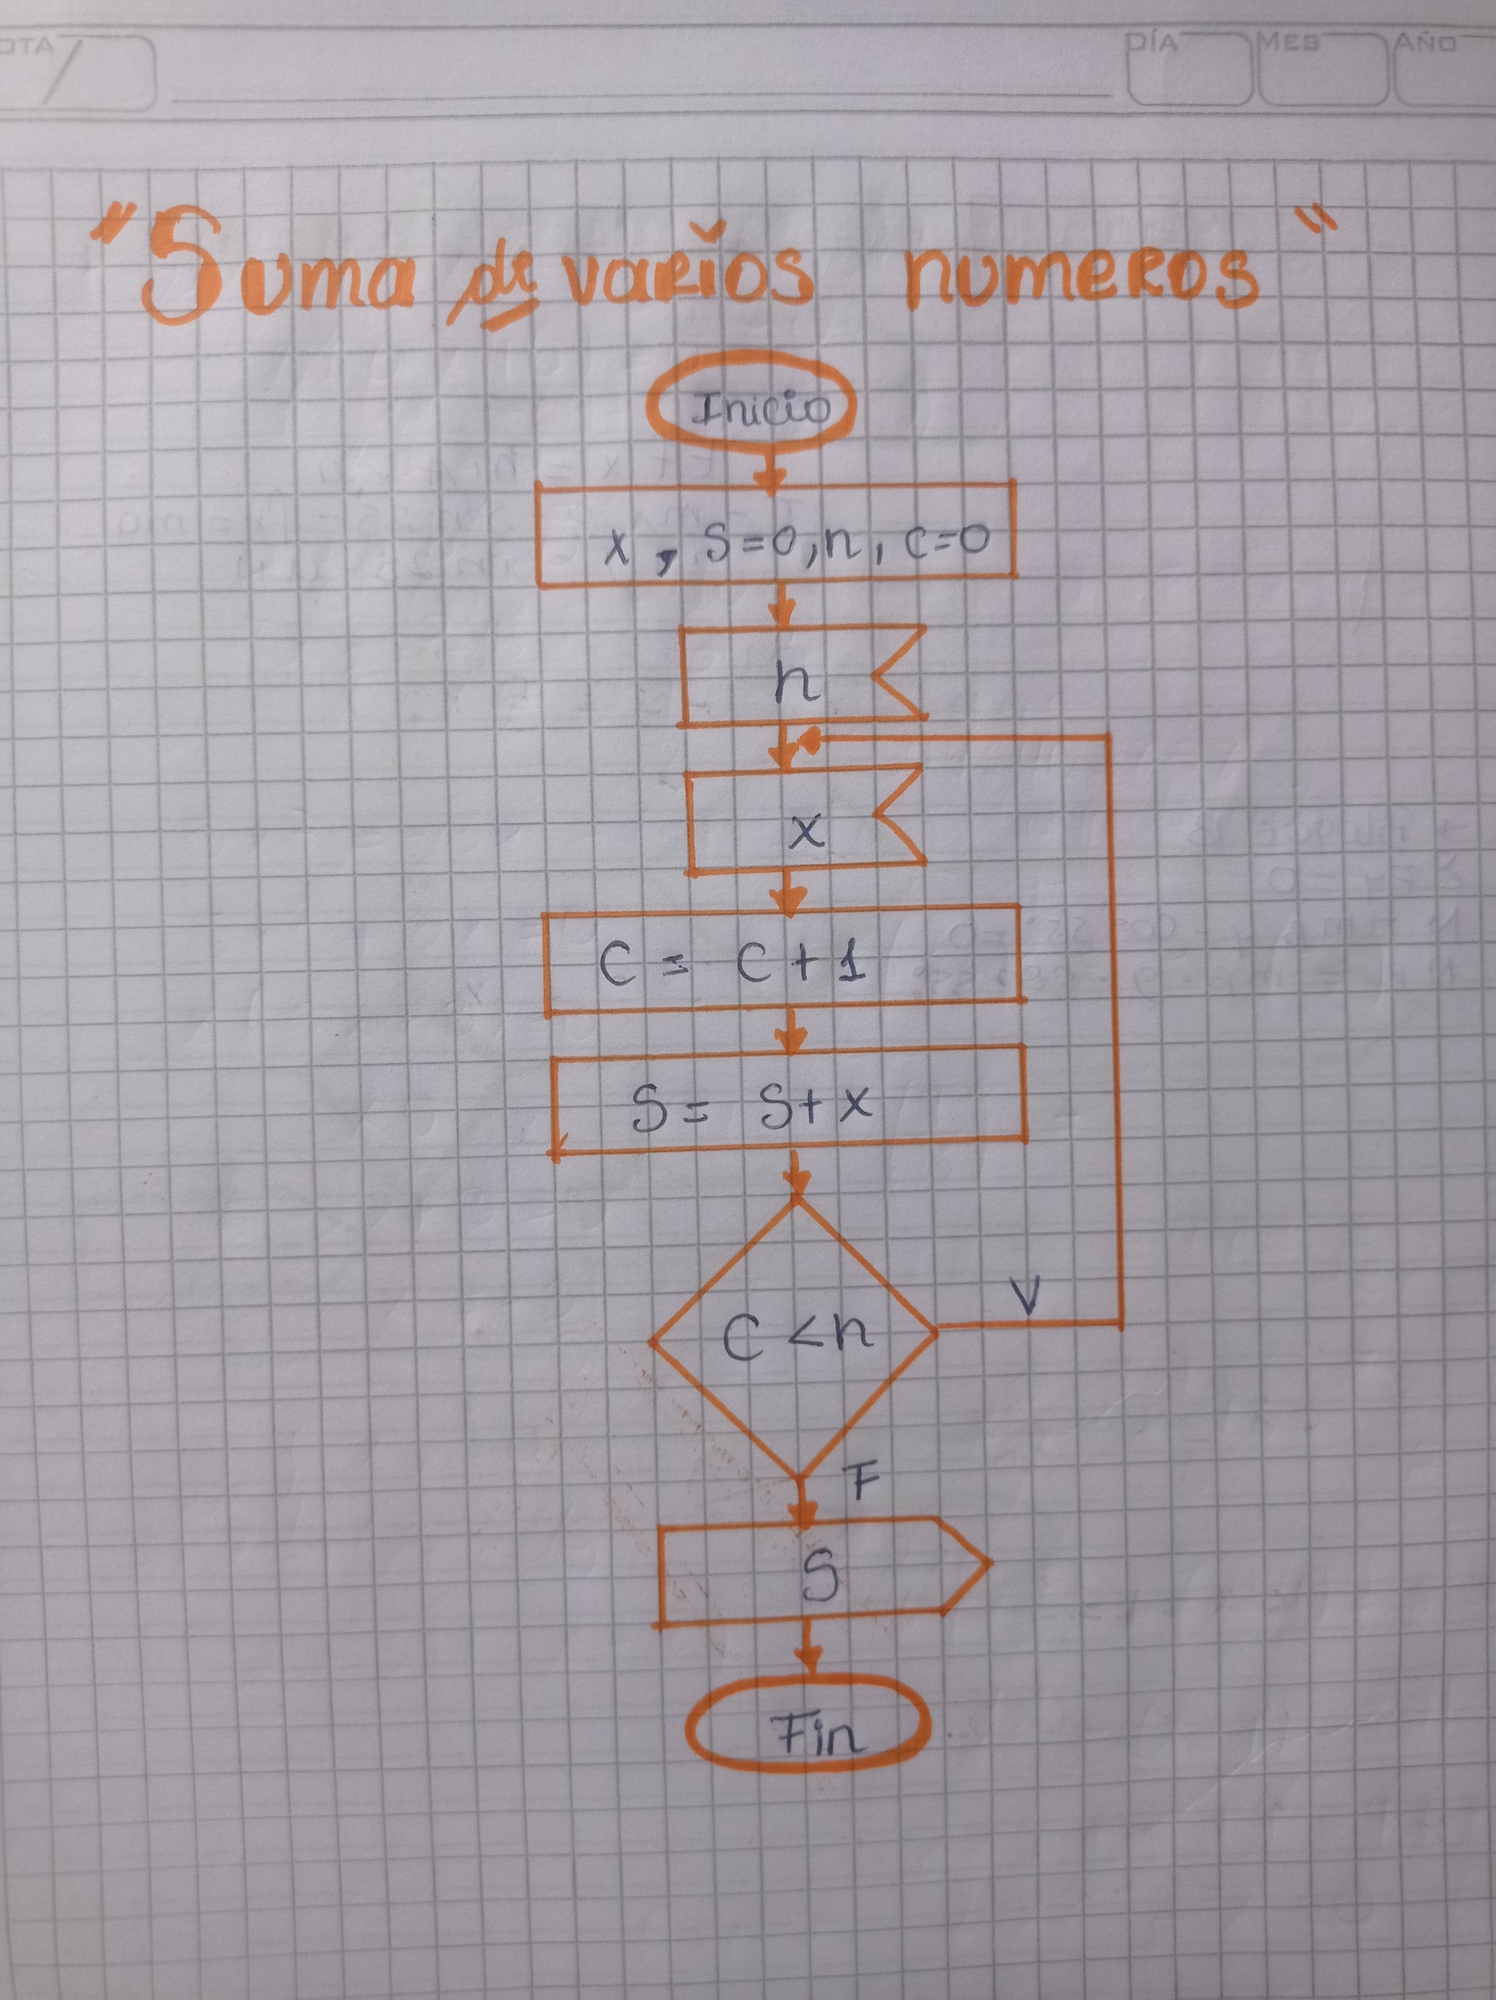 DÍA MES AÑO
"Suma de varios numeros"
Inicio
x, S=0, n, c=0
n
x
C = C + 1
S = S + x
C < n
V
F
S
Fin